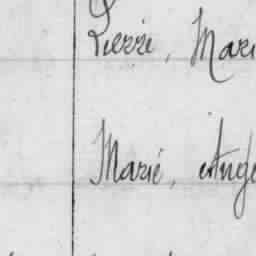 Pierre, Mari
Marie, Ange